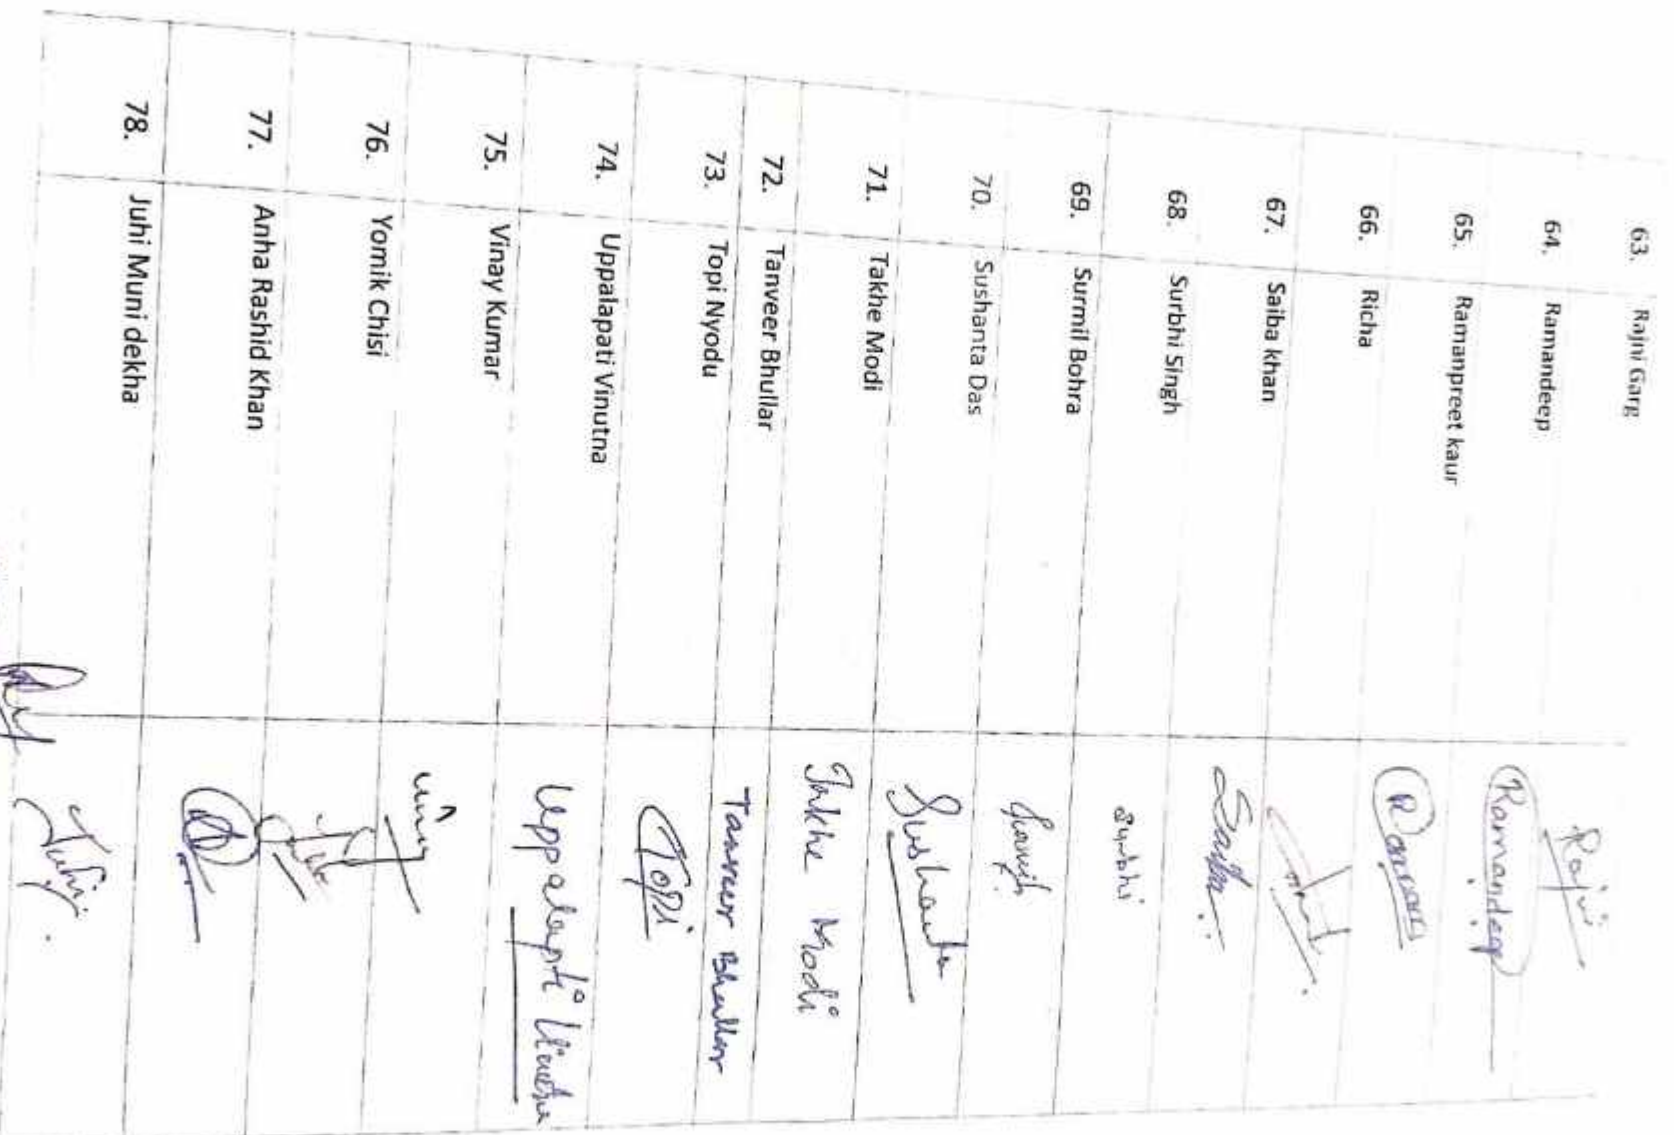 63. Rajni Garg Rajni
64. Ramandeep Ramandeep
65. Ramanpreet kaur Raman
66. Richa
67. Saiba khan Saiba
68. Surbhi Singh Surbhi
69. Surmil Bohra
70. Sushanta Das Sushanta
71. Takhe Modi Takhe Modi
72. Tanveer Bhullar Tanveer Bhullar
73. Topi Nyodu Topi
74. Uppalapati Vinutna
75. Vinay Kumar
76. Yomik Chisi
77. Anha Rashid Khan
78. Juhi Muni dekha Juhi